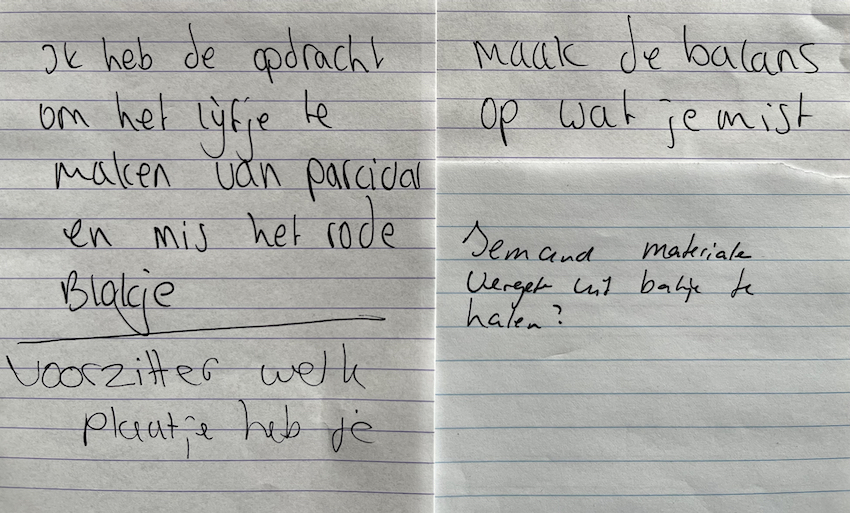 Ik heb de opdracht
om het lijfje te
maken van parcidar
en mis het rode
Blakje
voorzitter welk
plaatje heb je
maak de balans
op wat je mist
Iemand materiale
vergete uit bakje te
halen?